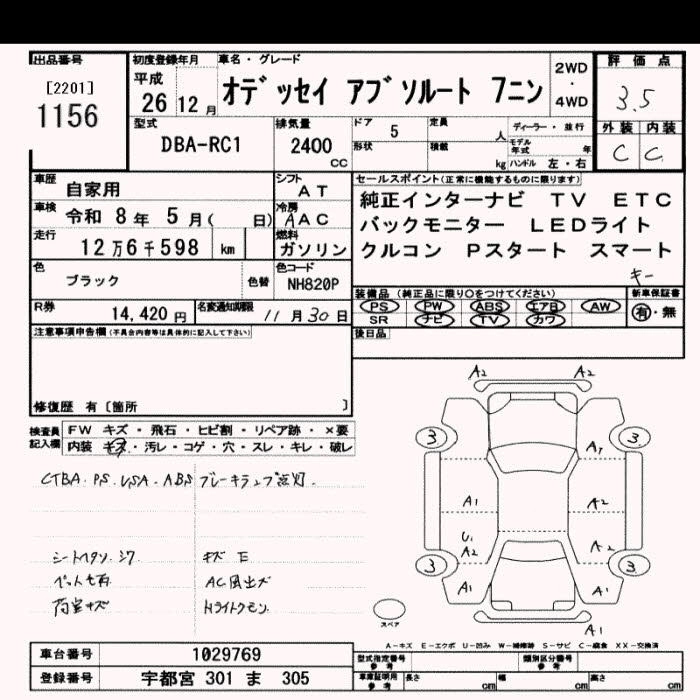 出品番号
[2201]
1156
初度登録年月
平成
26年12月
車名・グレード
オデッセイ アブソルート 7ニン
2WD
・
4WD
評価点
3.5
外装 内装
C C
型式
DBA-RC1
排気量
2400
cc
ドア 5
形状
定員
人
積載
kg
ディーラー・並行
モデル年式 年
ハンドル 左・右
車歴 自家用
シフト AT
車検 令和 8年 5月( 日)
冷房 AAC
走行 12万6千598 km
燃料 ガソリン
色 ブラック
色替
色コード NH820P
R券 14,420円
名変通知期限 11月30日
セールスポイント(正常に機能するものに限ります)
純正インターナビ TV ETC
バックモニター LEDライト
クルコン Pスタート スマート
キー
装備品 (純正品に限り○をつけてください)
PS PW ABS エアB AW
SR ナビ TV カワ
新車保証書
有・無
後日品
注意事項申告欄(不具合内容等は具体的に記入して下さい)
修復歴 有 [箇所 ]
検査員記入欄
FW キズ・飛石・ヒビ割・リペア跡・×要
内装 キズ・汚レ・コゲ・穴・スレ・キレ・破レ
CTBA.PS.VSA.ABS ブレーキランプ点灯.
シートヘタリ.シワ キズ E
ペット毛有 AC風出ズ
荷室キズ Hライトクモリ
A2 A2
3 3
A1
A1 A2
U1
A2 A2
3 3.
A1 A1
A1
スペア
A-キズ E-エクボ U-凹み W-補修跡 S-サビ C-腐食 XX-交換済
車台番号 1029769
登録番号 宇都宮 301 ま 305
型式指定番号 参考
類別区分番号 参考
車庫証明用 参考
長さ cm
幅 cm
高さ cm